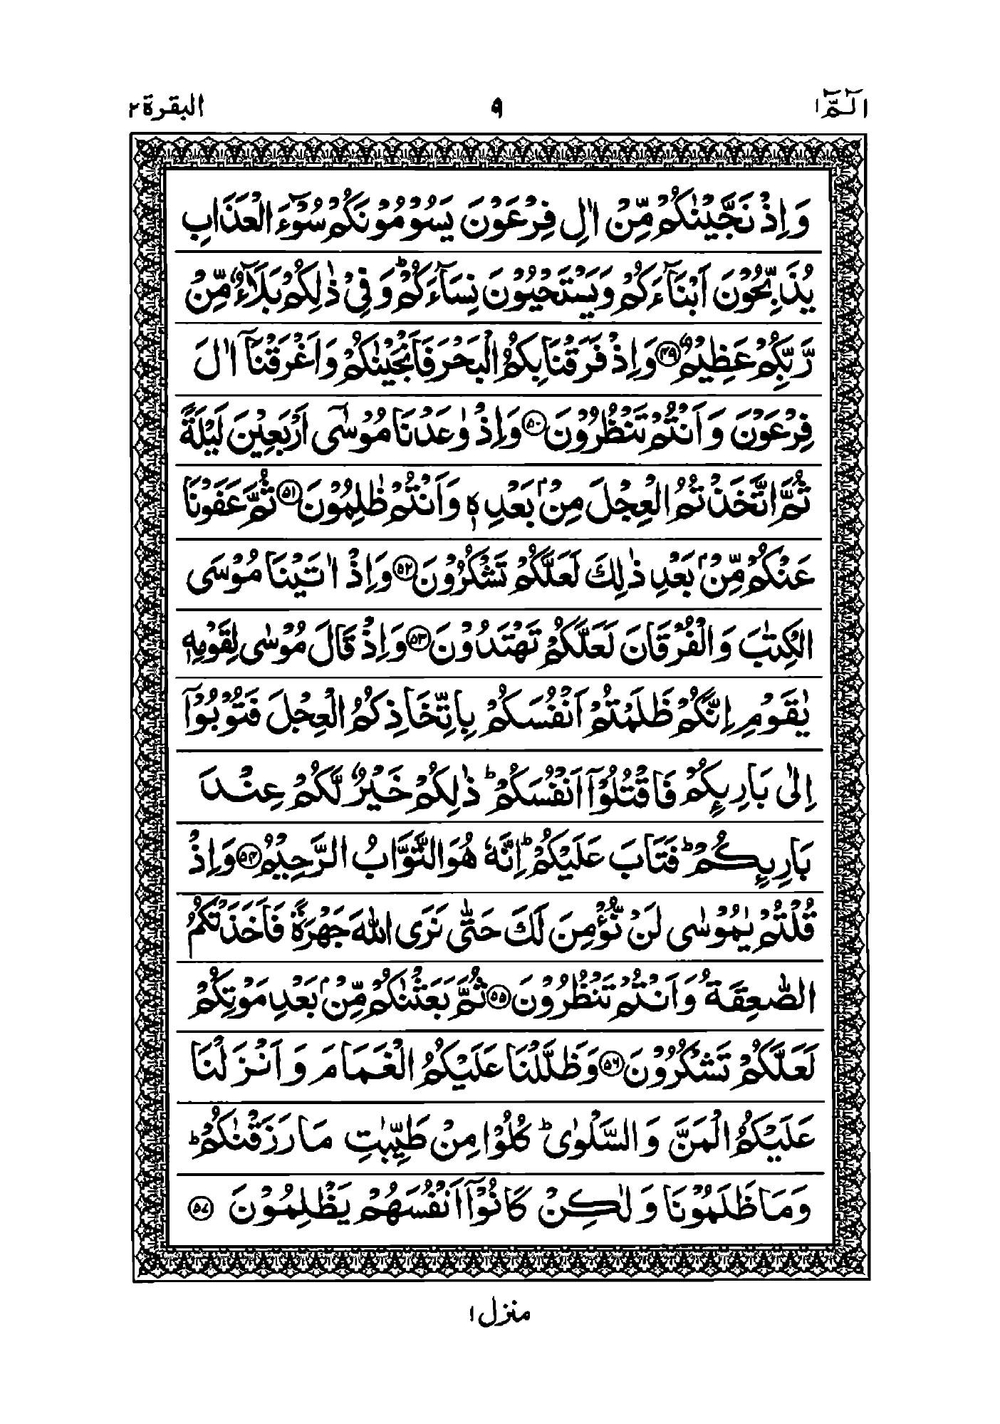 الٓمّٓ ۱ ۹ البقرة ۲
وَاِذْ نَجَّيْنٰكُمْ مِّنْ اٰلِ فِرْعَوْنَ يَسُوْمُوْنَكُمْ سُوْٓءَ الْعَذَابِ
يُذَبِّحُوْنَ اَبْنَآءَكُمْ وَيَسْتَحْيُوْنَ نِسَآءَكُمْ ؕ وَفِيْ ذٰلِكُمْ بَلَآءٌ مِّنْ
رَّبِّكُمْ عَظِيْمٌ ﴿۴۹﴾ وَاِذْ فَرَقْنَا بِكُمُ الْبَحْرَ فَاَنْجَيْنٰكُمْ وَاَغْرَقْنَآ اٰلَ
فِرْعَوْنَ وَاَنْتُمْ تَنْظُرُوْنَ ﴿۵۰﴾ وَاِذْ وٰعَدْنَا مُوْسٰٓى اَرْبَعِيْنَ لَيْلَةً
ثُمَّ اتَّخَذْتُمُ الْعِجْلَ مِنْۢ بَعْدِهٖ وَاَنْتُمْ ظٰلِمُوْنَ ﴿۵۱﴾ ثُمَّ عَفَوْنَا
عَنْكُمْ مِّنْۢ بَعْدِ ذٰلِكَ لَعَلَّكُمْ تَشْكُرُوْنَ ﴿۵۲﴾ وَاِذْ اٰتَيْنَا مُوْسَى
الْكِتٰبَ وَالْفُرْقَانَ لَعَلَّكُمْ تَهْتَدُوْنَ ﴿۵۳﴾ وَاِذْ قَالَ مُوْسٰى لِقَوْمِهٖ
يٰقَوْمِ اِنَّكُمْ ظَلَمْتُمْ اَنْفُسَكُمْ بِاتِّخَاذِكُمُ الْعِجْلَ فَتُوْبُوْٓا
اِلٰى بَارِىِٕكُمْ فَاقْتُلُوْٓا اَنْفُسَكُمْ ؕ ذٰلِكُمْ خَيْرٌ لَّكُمْ عِنْدَ
بَارِىِٕكُمْ ؕ فَتَابَ عَلَيْكُمْ ؕ اِنَّهٗ هُوَ التَّوَّابُ الرَّحِيْمُ ﴿۵۴﴾ وَاِذْ
قُلْتُمْ يٰمُوْسٰى لَنْ نُّؤْمِنَ لَكَ حَتّٰى نَرَى اللّٰهَ جَهْرَةً فَاَخَذَتْكُمُ
الصّٰعِقَةُ وَاَنْتُمْ تَنْظُرُوْنَ ﴿۵۵﴾ ثُمَّ بَعَثْنٰكُمْ مِّنْۢ بَعْدِ مَوْتِكُمْ
لَعَلَّكُمْ تَشْكُرُوْنَ ﴿۵۶﴾ وَظَلَّلْنَا عَلَيْكُمُ الْغَمَامَ وَاَنْزَلْنَا
عَلَيْكُمُ الْمَنَّ وَالسَّلْوٰى ؕ كُلُوْا مِنْ طَيِّبٰتِ مَا رَزَقْنٰكُمْ ؕ
وَمَا ظَلَمُوْنَا وَلٰكِنْ كَانُوْٓا اَنْفُسَهُمْ يَظْلِمُوْنَ ﴿۵۷﴾
منزل ۱